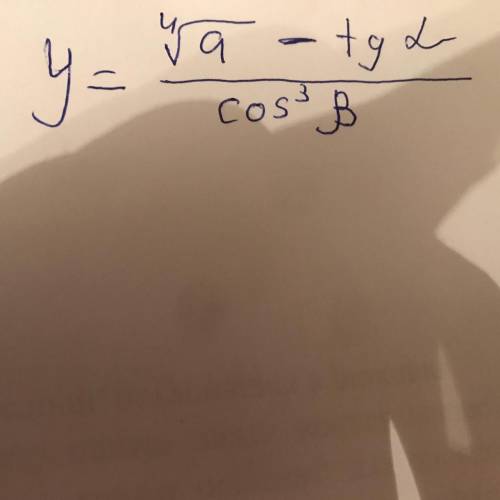 y = (∜a - tg α) / cos³ β